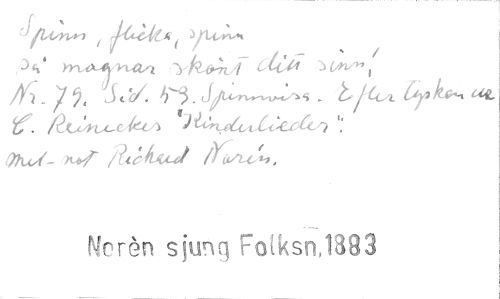 Spinn, flicka, spinn
så magnar skönt ditt sinn!
Nr. 79. Sid. 53. Spinnvisa. Efter tyskan ur
C. Reineckes "Kinderlieder".
mel-not Richard Norén.
Norèn sjung Folksn,1883